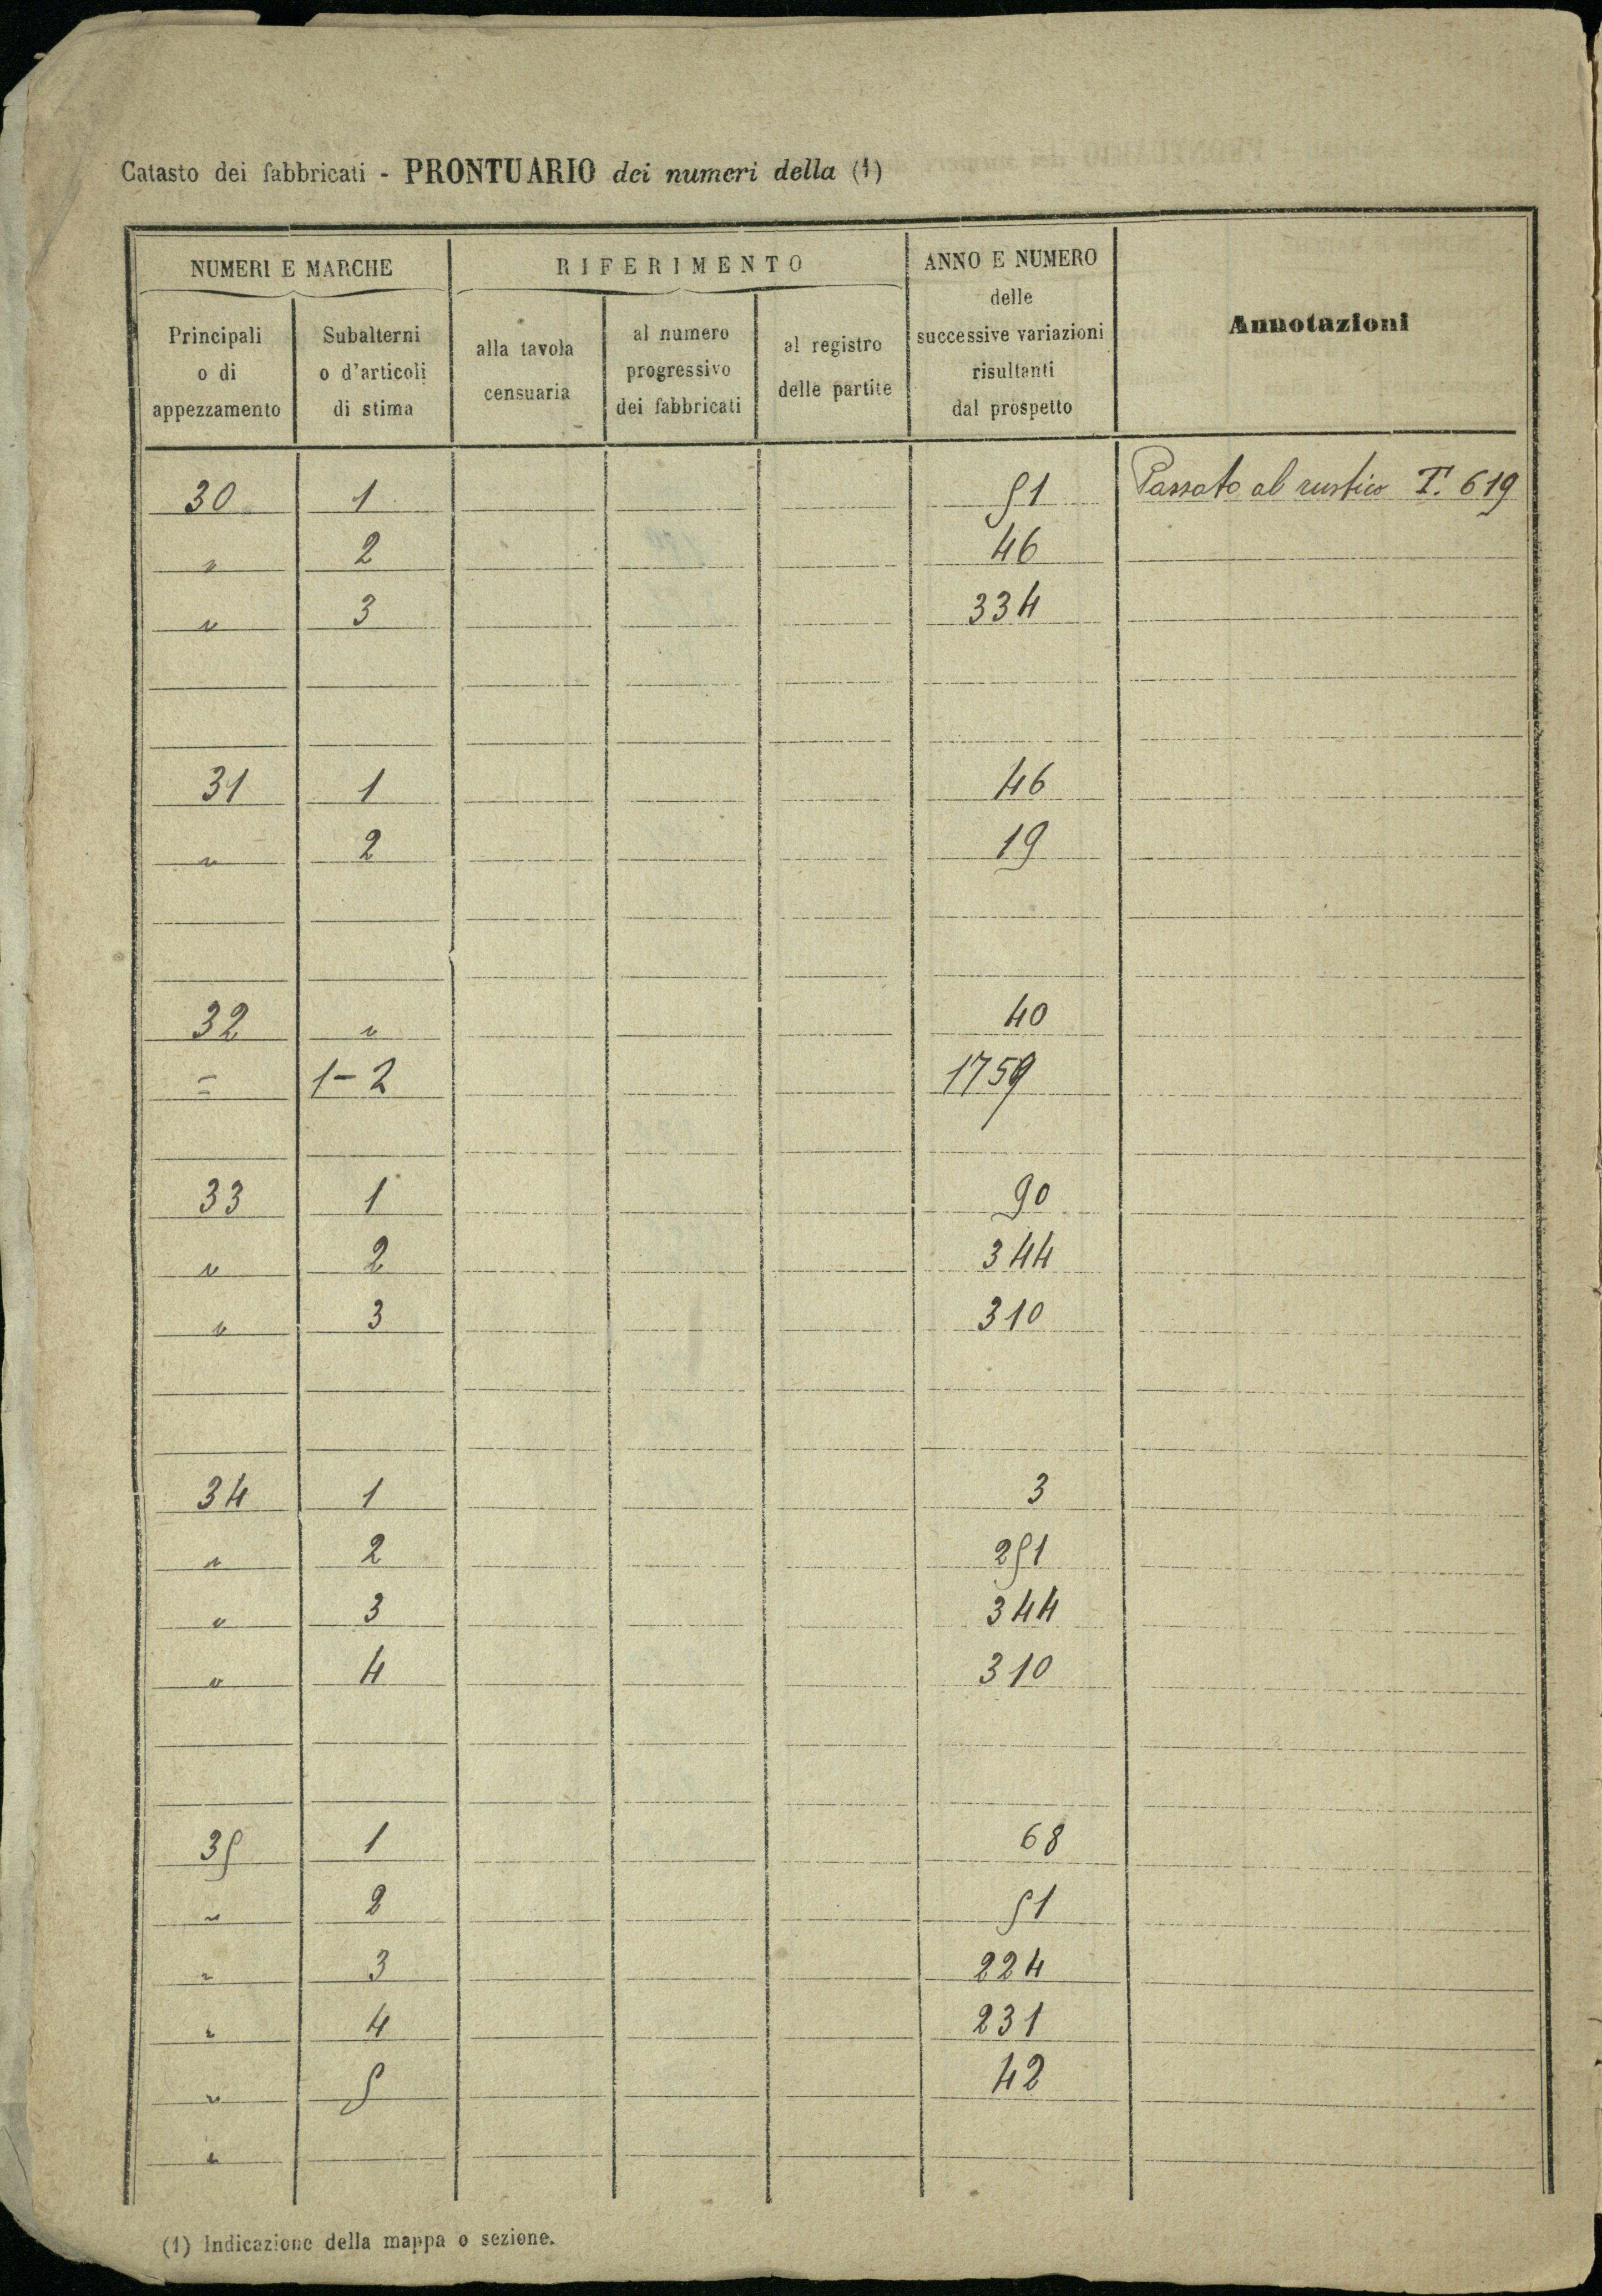 Catasto dei fabbricati - PRONTUARIO dei numeri della (1)
NUMERI E MARCHE
RIFERIMENTO
ANNO E NUMERO
delle
successive variazioni
risultanti
dal prospetto
Annotazioni
Principali
o di
appezzamento
Subalterni
o d'articoli
di stima
alla tavola
censuaria
al numero
progressivo
dei fabbricati
al registro
delle partite
30 1 51 Passato al rustico T. 619
" 2 46
" 3 334
31 1 46
" 2 19
32 " 40
= 1-2 1759
33 1 90
" 2 344
" 3 310
34 1 3
" 2 251
" 3 344
" 4 310
35 1 68
" 2 51
" 3 224
" 4 231
" 5 42
"
(1) Indicazione della mappa o sezione.